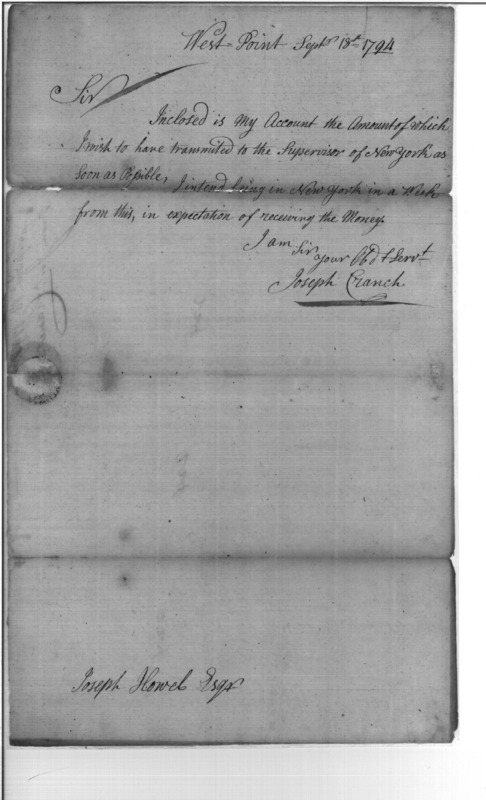 West-Point Septr 18th 1794
Sir
Inclosed is My Account the Amount of which
I wish to have transmited to the Supervisor of New York as
soon as Possible, I intend being in New York in a Week
from this, in expectation of receiving the Money.
I am Sir
your Obdt Servt
Joseph Cranch
Joseph Howel Esqr